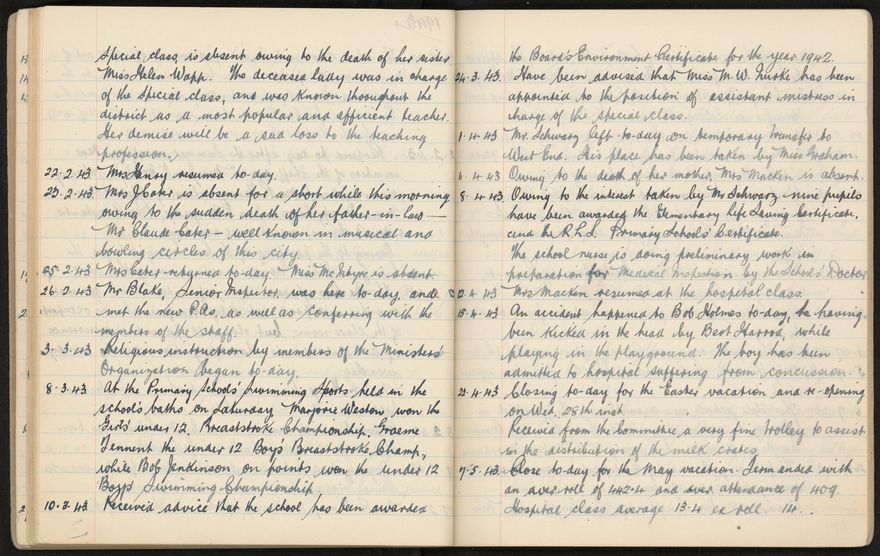 special class, is absent owing to the death of her sister
Miss Helen Wapp. The deceased lady was in charge
of the special class, and was known throughout the
district as a most popular and efficient teacher.
Her demise will be a sad loss to the teaching
profession.
22.2.43 Mrs Henry resumed to-day.
23.2.43. Mrs J Cater is absent for a short while this morning
owing to the sudden death of her father-in-law -
Mr Claude Cater - well known in musical and
bowling circles of this city
25.2.43 Mrs Cater returned to-day Miss McIntyre is absent
26.2.43 Mr Blake, Senior Inspector, was here to-day, and
met the new P.As. as well as conferring with the
members of the staff.
3.3.43 Religious instruction by members of the Ministers'
Organization began to-day.
8.3.43 At the Primary Schools' Swimming Sports held in the
schools baths on Saturday Marjorie Weston won the
Girls' under 12, Breaststroke Championship, Graeme
Tennent the under 12 Boys' Breaststroke Champ,
while Bob Jenkinson on points, won the under 12
Boys' Swimming Championship.
10.3.43 Received advice that the school has been awarded
the Board's Environment Certificate for the year 1942.
24.3.43. Have been advised that Miss M.W. has been
appointed to the position of assistant mistress in
charge of the special class.
1.4.43 Mr. Schwarz left to-day on temporary transfer to
West End. His place has been taken by Miss Graham.
6.4.43 Owing to the death of her mother, Mrs Macken is absent.
8.4.43 Owing to the interest taken by Mr Schwarz nine pupils
have been awarded the Elementary Life Saving Certificate,
and the R.L.S. Primary Schools' Certificate.
The school nurse is doing preliminary work in
preparation for Medical Inspection by the Schools' Doctor
12.4.43 Mrs Macken resumed at the hospital class
15.4.43 An accident happened to Bob Holmes to-day, he having
been kicked in the head by Bert Harrod, while
playing in the playground. The boy has been
admitted to hospital suffering from concussion.
22.4.43 Closing to-day for the Easter vacation and re-opening
on Wed, 28th inst.
Received from the Committee a very fine trolley to assist
in the distribution of the milk crates
7.5.43. Close to-day for the May vacation. Term ended with
an aver. roll of 442.4 and aver. attendance of 409.
Hospital class average 13.4 ex roll. 14.